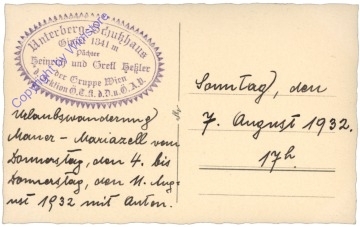 Unterberg-Schutzhaus
Gipfel 1341 m
Pächter
Heinrich und Gretl Heßler
der Gruppe Wien
d. Sektion Ö.T.K. d. D. u. Ö. A. V.
Copyright by
Urlaubswanderung
Mauer - Mariazell vom
Donnerstag, den 4. bis
Donnerstag, den 11. Augu-
st 1932 mit Anton.
Sonntag, den
7. August 1932.
17h.